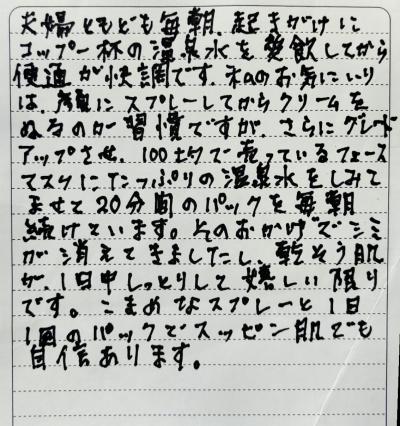 夫婦ともども毎朝、起きがけに
コップ一杯の温泉水を愛飲してから
便通が快調です。私のお気にいり
は、顔にスプレーしてからクリームを
ぬるのが習慣ですが、さらにグレード
アップさせ、100均で売っているフェース
マスクにたっぷりの温泉水をしみこ
ませて20分間のパックを毎朝
続けています。そのおかげでシミ
が消えてきましたし、乾そう肌
が、1日中しっとりして嬉しい限り
です。こまめなスプレーと1日
1回のパックでスッピン肌でも
自信あります。